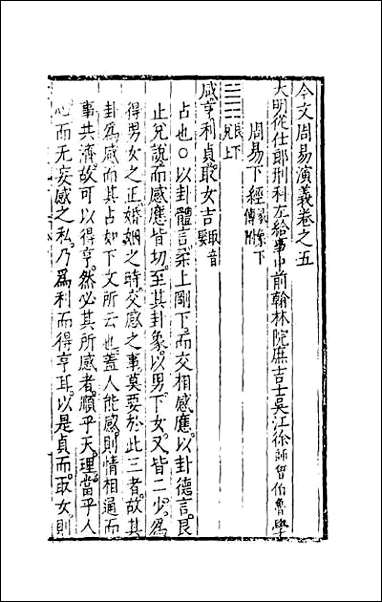 今文周易演義卷之五
大明從仕郎刑科左給事中前翰林院庶吉士吳江徐師曾伯魯學
周易下經 彖象下傳附
䷞ 艮下兌上
咸亨利貞取女吉 娶音
占也○以卦體言柔上剛下而交相感應以卦德言艮
止兌說而感應皆切至其卦象以男下女又皆二少為
得男女之正婚姻之時交感之事莫要於此三者故其
卦為咸而其占如下文所云也蓋人能感則情相通而
事共濟故可以得亨然必其所感者順乎天理當乎人
心而无妄感之私乃為利而得亨耳以是貞而取女則